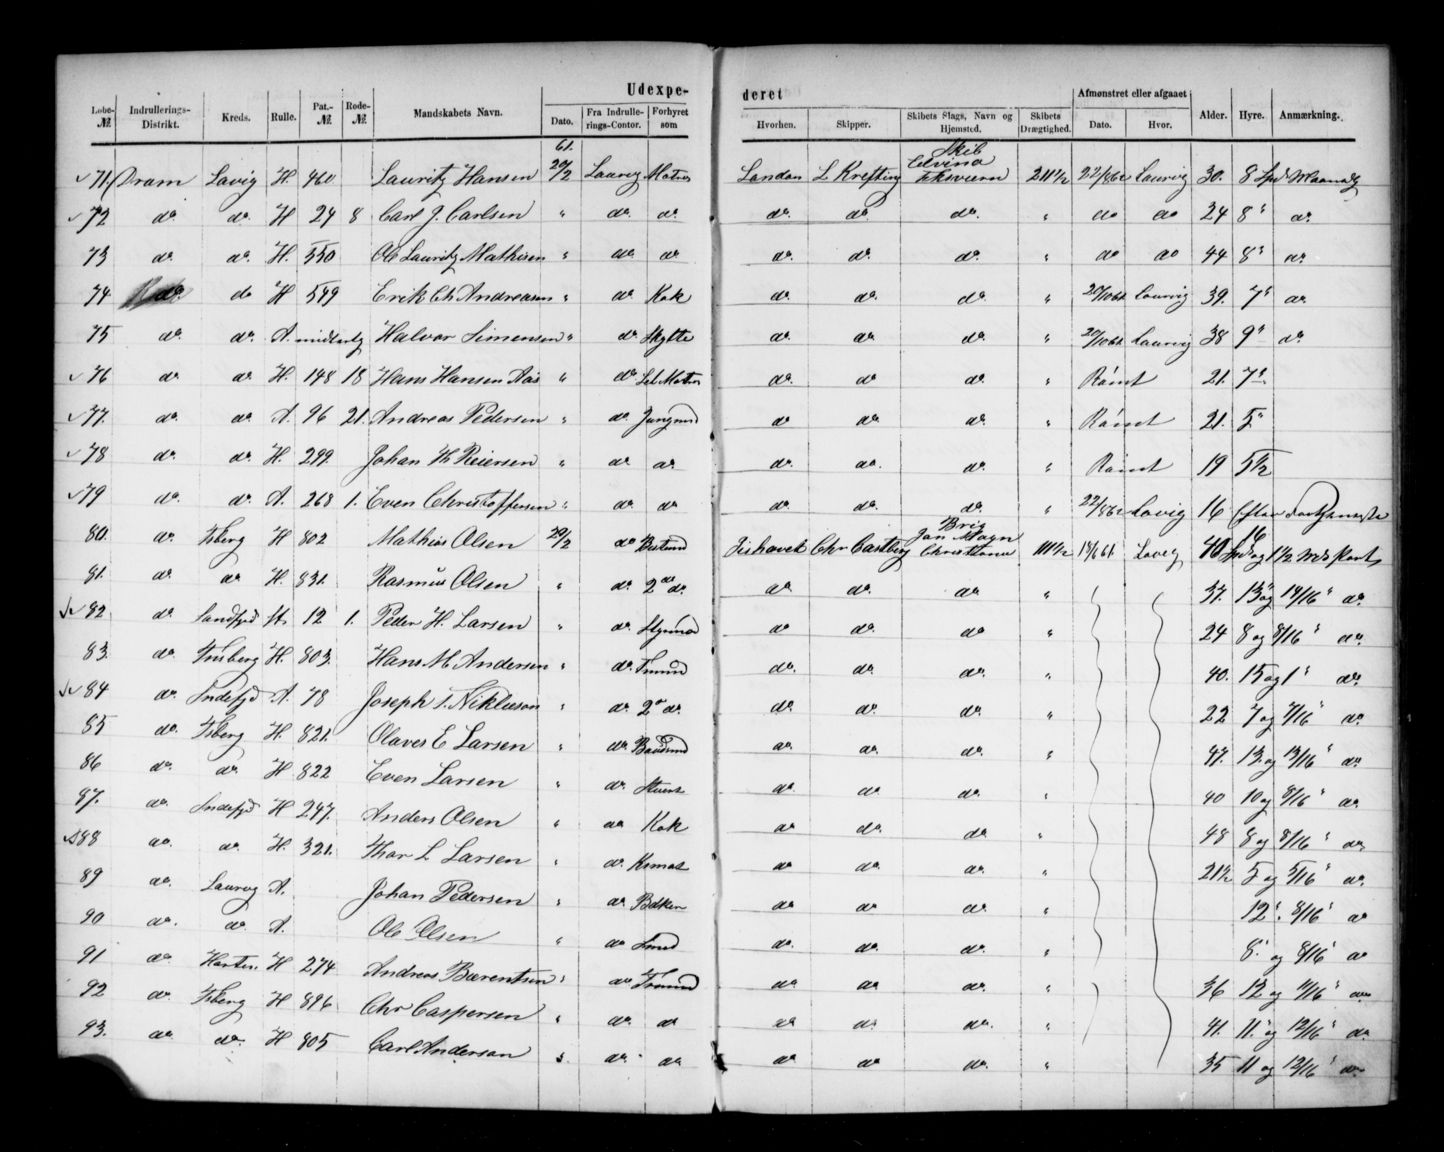 Udexpederet
Lobe-№ Indrullerings-Distrikt. Kreds. Rulle. Pat.-№ Rode-№ Mandskabets Navn. Dato. Fra Indrulle-rings-Contor. Forhyret som Hvorhen. Skipper. Skibets Slags, Navn og Hjemsted. Skibets Drægtighed. Afmønstret eller afgaaet Dato. Hvor. Alder. Hyre. Anmærkning.
71 Dram Lavig H. 460 Lauritz Hansen 61. 20/2 Laurvig Matros London L Krefting Skib 211 1/2 22/8 62 Laurvig 30. 8 Spd Maanedlig
72 do. do. H 24 8 Carl J. Carlsen " do. do. do. do. do. " do do 24 8" do.
73 do. do. H. 550 Ole Lauritz Mathisen " do. do do. do. do. " do do 44 8" do.
74 do. do H 549 Erik Ch Andreasen " do. Kok do. do. do. " 20/10 61 Laurvig 39. 7" do.
75 do. do. A. midlertg Halvor Simensen " do. do. do. do. " 20/10 61 Laurvig 38 9" do.
76 do. do. H. 148 18 Hans Hansen Aas " do. Let Matros do. do do. " Rømt 21. 7"
77. do. do. A. 96 21. Andreas Pedersen " do. Jungmd do do. do. " Rømt 21. 5"
78 do. do. H. 299. Johan Th Reiersen " do do. do. do. do. " Rømt 19 5 1/2
79 do. do. A. 268 1. Even Christoffersen " do. do do. do. do. " 22/8 62 Lavig 16 Efter Fortjeneste
80. do. Tsberg H 802 Mathias Olsen 20/2 do. Bestmd Ishavet Chr Castberg Brig Jan Mayn Christiania 111 1/2 61. Lavig 40 16 Spd og 1 1/2 Part
81. do. do H. 831. Rasmus Olsen " do. 2den do. do do. do " 37. 13" og 14/16 " do.
82 do. Sandfjd 12 1. Peder H. Larsen " do. Styrmd do do. do " 24 8 og 8/16 " do.
83. do. Tnsberg H. 803. Hans M. Andersen " do. do. do. do. " 40. 15 og 1" do.
84 do. Sndefjd A. 78 Joseph T. Niklasson " do. 2d do. do. do. do. " 22 7 og 7/16 " do
85 do. Tsberg H. 821. Olaves E Larsen " do. Baadsmd do. do. do. " 47. 13. og 13/16 " do
86 do. do. H 822 Even Larsen " do. Stuert do do do. " 40 10 og 8/16 " do
87. do. Sndefjd H 247. Anders Olsen " do Kok do do. do. " 48 8 og 8/16 " do.
88 do. do. H. 321. Thor L Larsen " do. Ksmat do do. do. " 21 1/2 5 og 5/16 " do.
89 do. Laurvig A. Johan Pedersen " do. do do. do. " 12" 8/16 " do
90 do. do. A. Ole Olsen " do Smed do. do. do. " 8" og 8/16 " do
91 do. Horten. H 274 Andreas Bærentsen " do do do. do. " 36 12 og 11/16 " do
92 do. Tsberg H 896 Chr Caspersen " do. do do do. do. " 41. 11" og 12/16 " do.
93. do. do. H 805 Carl Anderson " do. do. do do. do. " 35 11 og 12/16 " do.